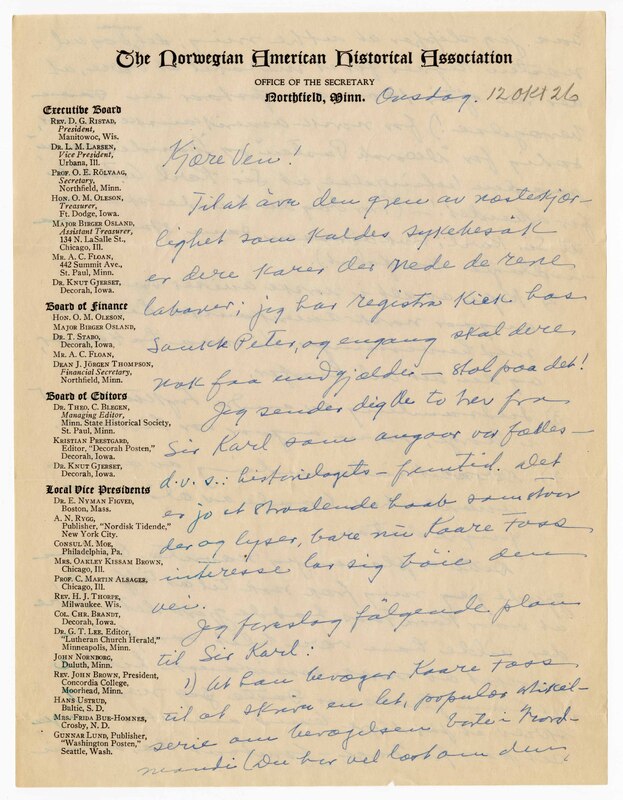 The Norwegian American Historical Association
OFFICE OF THE SECRETARY
Northfield, Minn.
Onsdag. 12 Okt 26
Executive Board
REV. D. G. RISTAD,
President,
Manitowoc, Wis.
DR. L. M. LARSEN,
Vice President,
Urbana, Ill.
PROF. O. E. RÖLVAAG,
Secretary,
Northfield, Minn.
HON. O. M. OLESON,
Treasurer,
Ft. Dodge, Iowa.
MAJOR BIRGER OSLAND,
Assistant Treasurer,
134 N. LaSalle St.,
Chicago, Ill.
MR. A. C. FLOAN,
442 Summit Ave.,
St. Paul, Minn.
DR. KNUT GJERSET,
Decorah, Iowa.
Board of Finance
HON. O. M. OLESON,
MAJOR BIRGER OSLAND,
DR. T. STABO,
Decorah, Iowa.
MR. A. C. FLOAN,
DEAN J. JÖRGEN THOMPSON,
Financial Secretary,
Northfield, Minn.
Board of Editors
DR. THEO. C. BLEGEN,
Managing Editor,
Minn. State Historical Society,
St. Paul, Minn.
KRISTIAN PRESTGARD,
Editor, "Decorah Posten,"
Decorah, Iowa.
DR. KNUT GJERSET,
Decorah, Iowa.
Local Vice Presidents
DR. E. NYMAN FIGVED,
Boston, Mass.
A. N. RYGG,
Publisher, "Nordisk Tidende,"
New York City.
CONSUL M. MOE,
Philadelphia, Pa.
MRS. OAKLEY KISSAM BROWN,
Chicago, Ill.
PROF. C. MARTIN ALSAGER,
Chicago, Ill.
REV. H. J. THORPE,
Milwaukee. Wis.
COL. CHR. BRANDT,
Decorah, Iowa.
DR. G. T. LEE, Editor,
"Lutheran Church Herald,"
Minneapolis, Minn.
JOHN NORNBORG,
Duluth, Minn.
REV. JOHN BROWN, President,
Concordia College,
Moorhead, Minn.
HANS USTRUD,
Baltic, S. D.
MRS. FRIDA BUE-HOMNES,
Crosby, N. D.
GUNNAR LUND, Publisher,
"Washington Posten,"
Seattle, Wash.
Kjære Ven!
Til at öva den gren av næstekjær-
lighet som kaldes sykebesök
er dere karer der nede de rene
labaner; jeg har registra Kick hos
Sankte Peter, og engang skal dere
nok faa undgjælde — stol paa det!
Jeg sender dig to brev fra
Sir Karl som angaar vor fælles —
d.v.s.: historielagets — fremtid. Det
er jo et straalende haab som stror
der og lyser, bare nu Kaare Foss
interesse lar sig böie den
vei.
Jeg foreslog fölgende plan
til Sir Karl:
1) At han bevæger Kaare Foss
til at skriva en let, populær artikel-
serie om bevægelsen borte i Nord-
mandi (Du har vel læst om den,